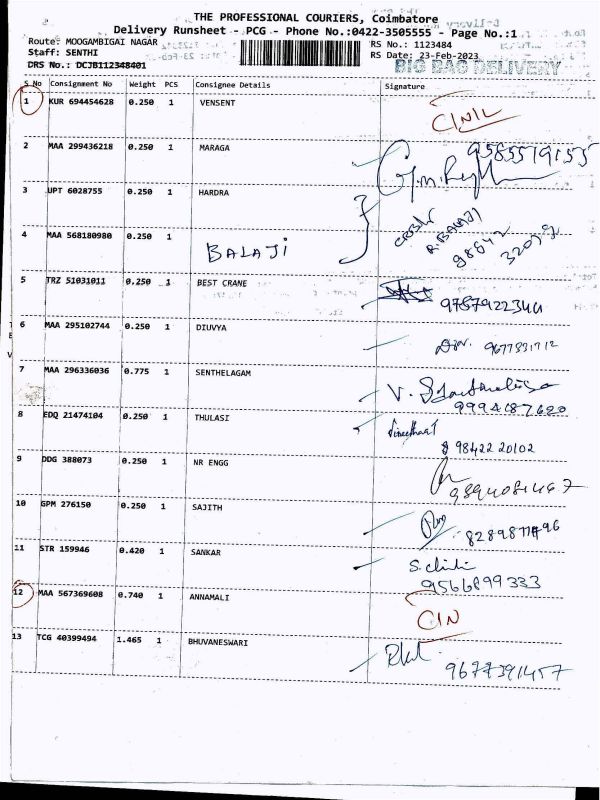 THE PROFESSIONAL COURIERS, Coimbatore
Delivery Runsheet - PCG - Phone No.:0422-3505555 - Page No.:1
Route: MOOGAMBIGAI NAGAR
RS No.: 1123484
Staff: SENTHI
RS Date: 23-Feb-2023
DRS No.: DCJB112348401
BIG BAG DELIVERY
S No Consignment No Weight PCS Consignee Details Signature
1 KUR 694454628 0.250 1 VENSENT
2 MAA 299436218 0.250 1 MARAGA 9585519155
3 UPT 6028755 0.250 1 HARDRA
R. BALAJI
98642
32079
4 MAA 568180980 0.250 1 BALAJI
5 TRZ 51031011 0.250 1 BEST CRANE
6 MAA 295102744 0.250 1 DIUVYA 9677831712
7 MAA 296336036 0.775 1 SENTHELAGAM
9994187620
8 EDQ 21474104 0.250 1 THULASI
98422 20102
9 DDG 388073 0.250 1 NR ENGG
10 GPM 276150 0.250 1 SAJITH
11 STR 159946 0.420 1 SANKAR
9566899333
12 MAA 567369608 0.740 1 ANNAMALI CIN
13 TCG 40399494 1.465 1 BHUVANESWARI
9677391457